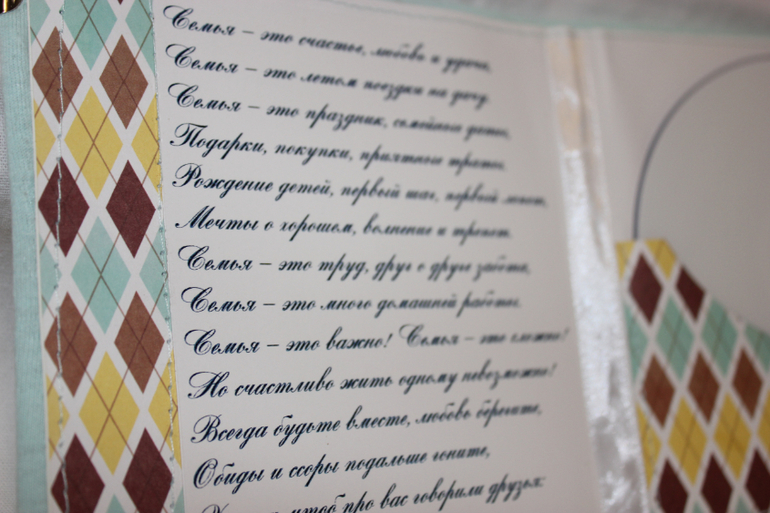 Семья – это счастье, любовь и удача,
Семья – это летом поездки на дачу.
Семья – это праздник, семейные даты,
Подарки, покупки, приятные траты.
Рождение детей, первый шаг, первый лепет,
Мечты о хорошем, волнение и трепет.
Семья – это труд, друг о друге забота,
Семья – это много домашней работы.
Семья – это важно! Семья – это сложно!
Но счастливо жить одному невозможно!
Всегда будьте вместе, любовь берегите,
Обиды и ссоры подальше гоните,
чтоб про вас говорили друзья: